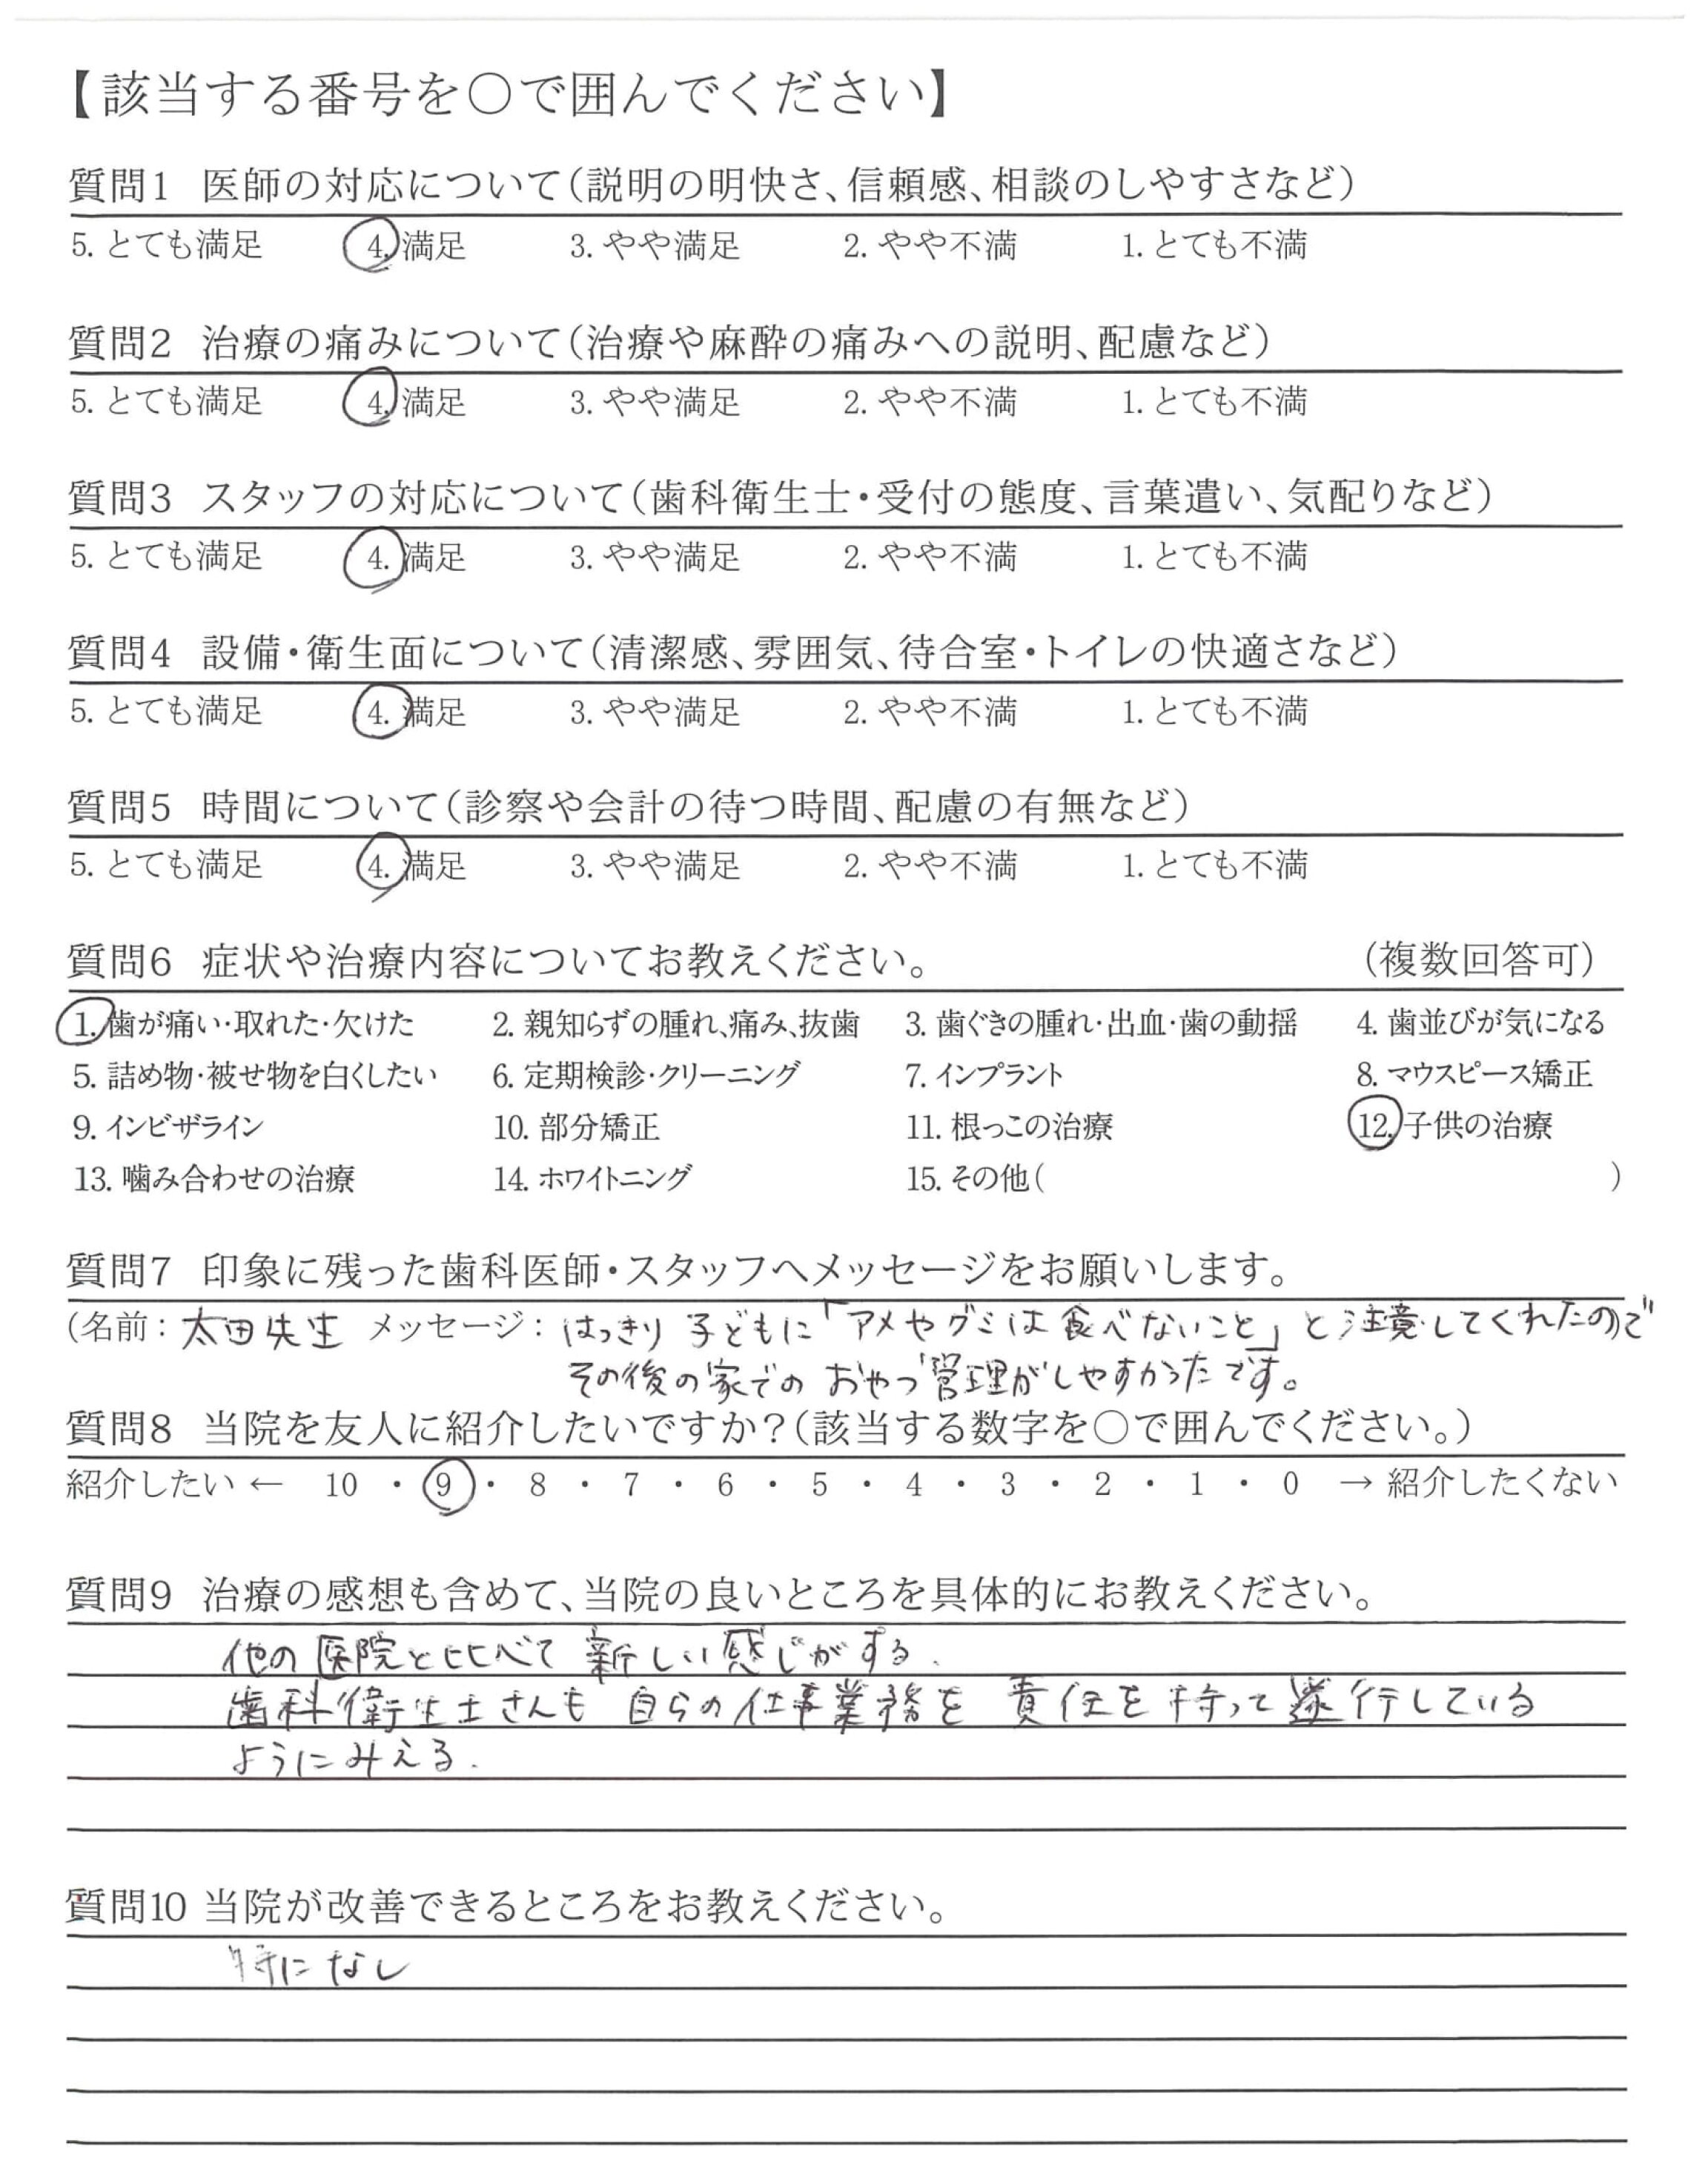 【該当する番号を○で囲んでください】
質問1 医師の対応について(説明の明快さ、信頼感、相談のしやすさなど)
5. とても満足 4. 満足 3. やや満足 2. やや不満 1. とても不満
質問2 治療の痛みについて(治療や麻酔の痛みへの説明、配慮など)
5. とても満足 4. 満足 3. やや満足 2. やや不満 1. とても不満
質問3 スタッフの対応について(歯科衛生士・受付の態度、言葉遣い、気配りなど)
5. とても満足 4. 満足 3. やや満足 2. やや不満 1. とても不満
質問4 設備・衛生面について(清潔感、雰囲気、待合室・トイレの快適さなど)
5. とても満足 4. 満足 3. やや満足 2. やや不満 1. とても不満
質問5 時間について(診察や会計の待つ時間、配慮の有無など)
5. とても満足 4. 満足 3. やや満足 2. やや不満 1. とても不満
質問6 症状や治療内容についてお教えください。 (複数回答可)
1. 歯が痛い・取れた・欠けた 2. 親知らずの腫れ、痛み、抜歯 3. 歯ぐきの腫れ・出血・歯の動揺 4. 歯並びが気になる
5. 詰め物・被せ物を白くしたい 6. 定期検診・クリーニング 7. インプラント 8. マウスピース矯正
9. インビザライン 10. 部分矯正 11. 根っこの治療 12. 子供の治療
13. 噛み合わせの治療 14. ホワイトニング 15. その他( )
質問7 印象に残った歯科医師・スタッフへメッセージをお願いします。
(名前：太田先生 メッセージ：はっきり子どもに「アメやグミは食べないこと」と注意してくれたので)
その後の家でのおやつ管理がしやすかったです。
質問8 当院を友人に紹介したいですか？(該当する数字を○で囲んでください。)
紹介したい ← 10 ・ 9 ・ 8 ・ 7 ・ 6 ・ 5 ・ 4 ・ 3 ・ 2 ・ 1 ・ 0 → 紹介したくない
質問9 治療の感想も含めて、当院の良いところを具体的にお教えください。
他の医院と比べて新しい感じがする.
歯科衛生士さんも自らの仕事業務を責任を持って遂行している
ようにみえる.
質問10 当院が改善できるところをお教えください。
特になし